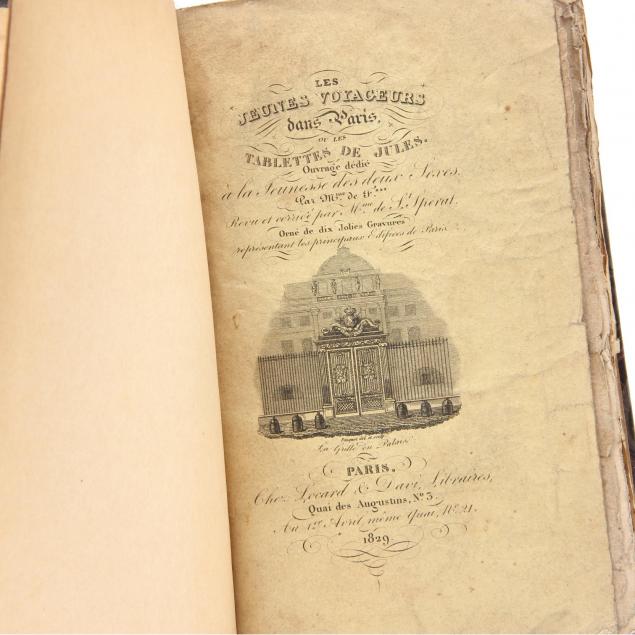 LES
JEUNES VOYAGEURS
dans Paris,
OU LES
TABLETTES DE JULES.
Ouvrage dédié
à la Jeunesse des deux Sexes,
Par M.me de F.***
Revu et corrigé par M.me de S.t Spérat.
Orné de dix Jolies Gravures
représentant les principaux Edifices de Paris.
La Grille du Palais.
PARIS.
Chez Locard & Davi, Libraires,
Quai des Augustins, N.º 3.
Au 1.er Avril même Quai, N.º 21.
1829.